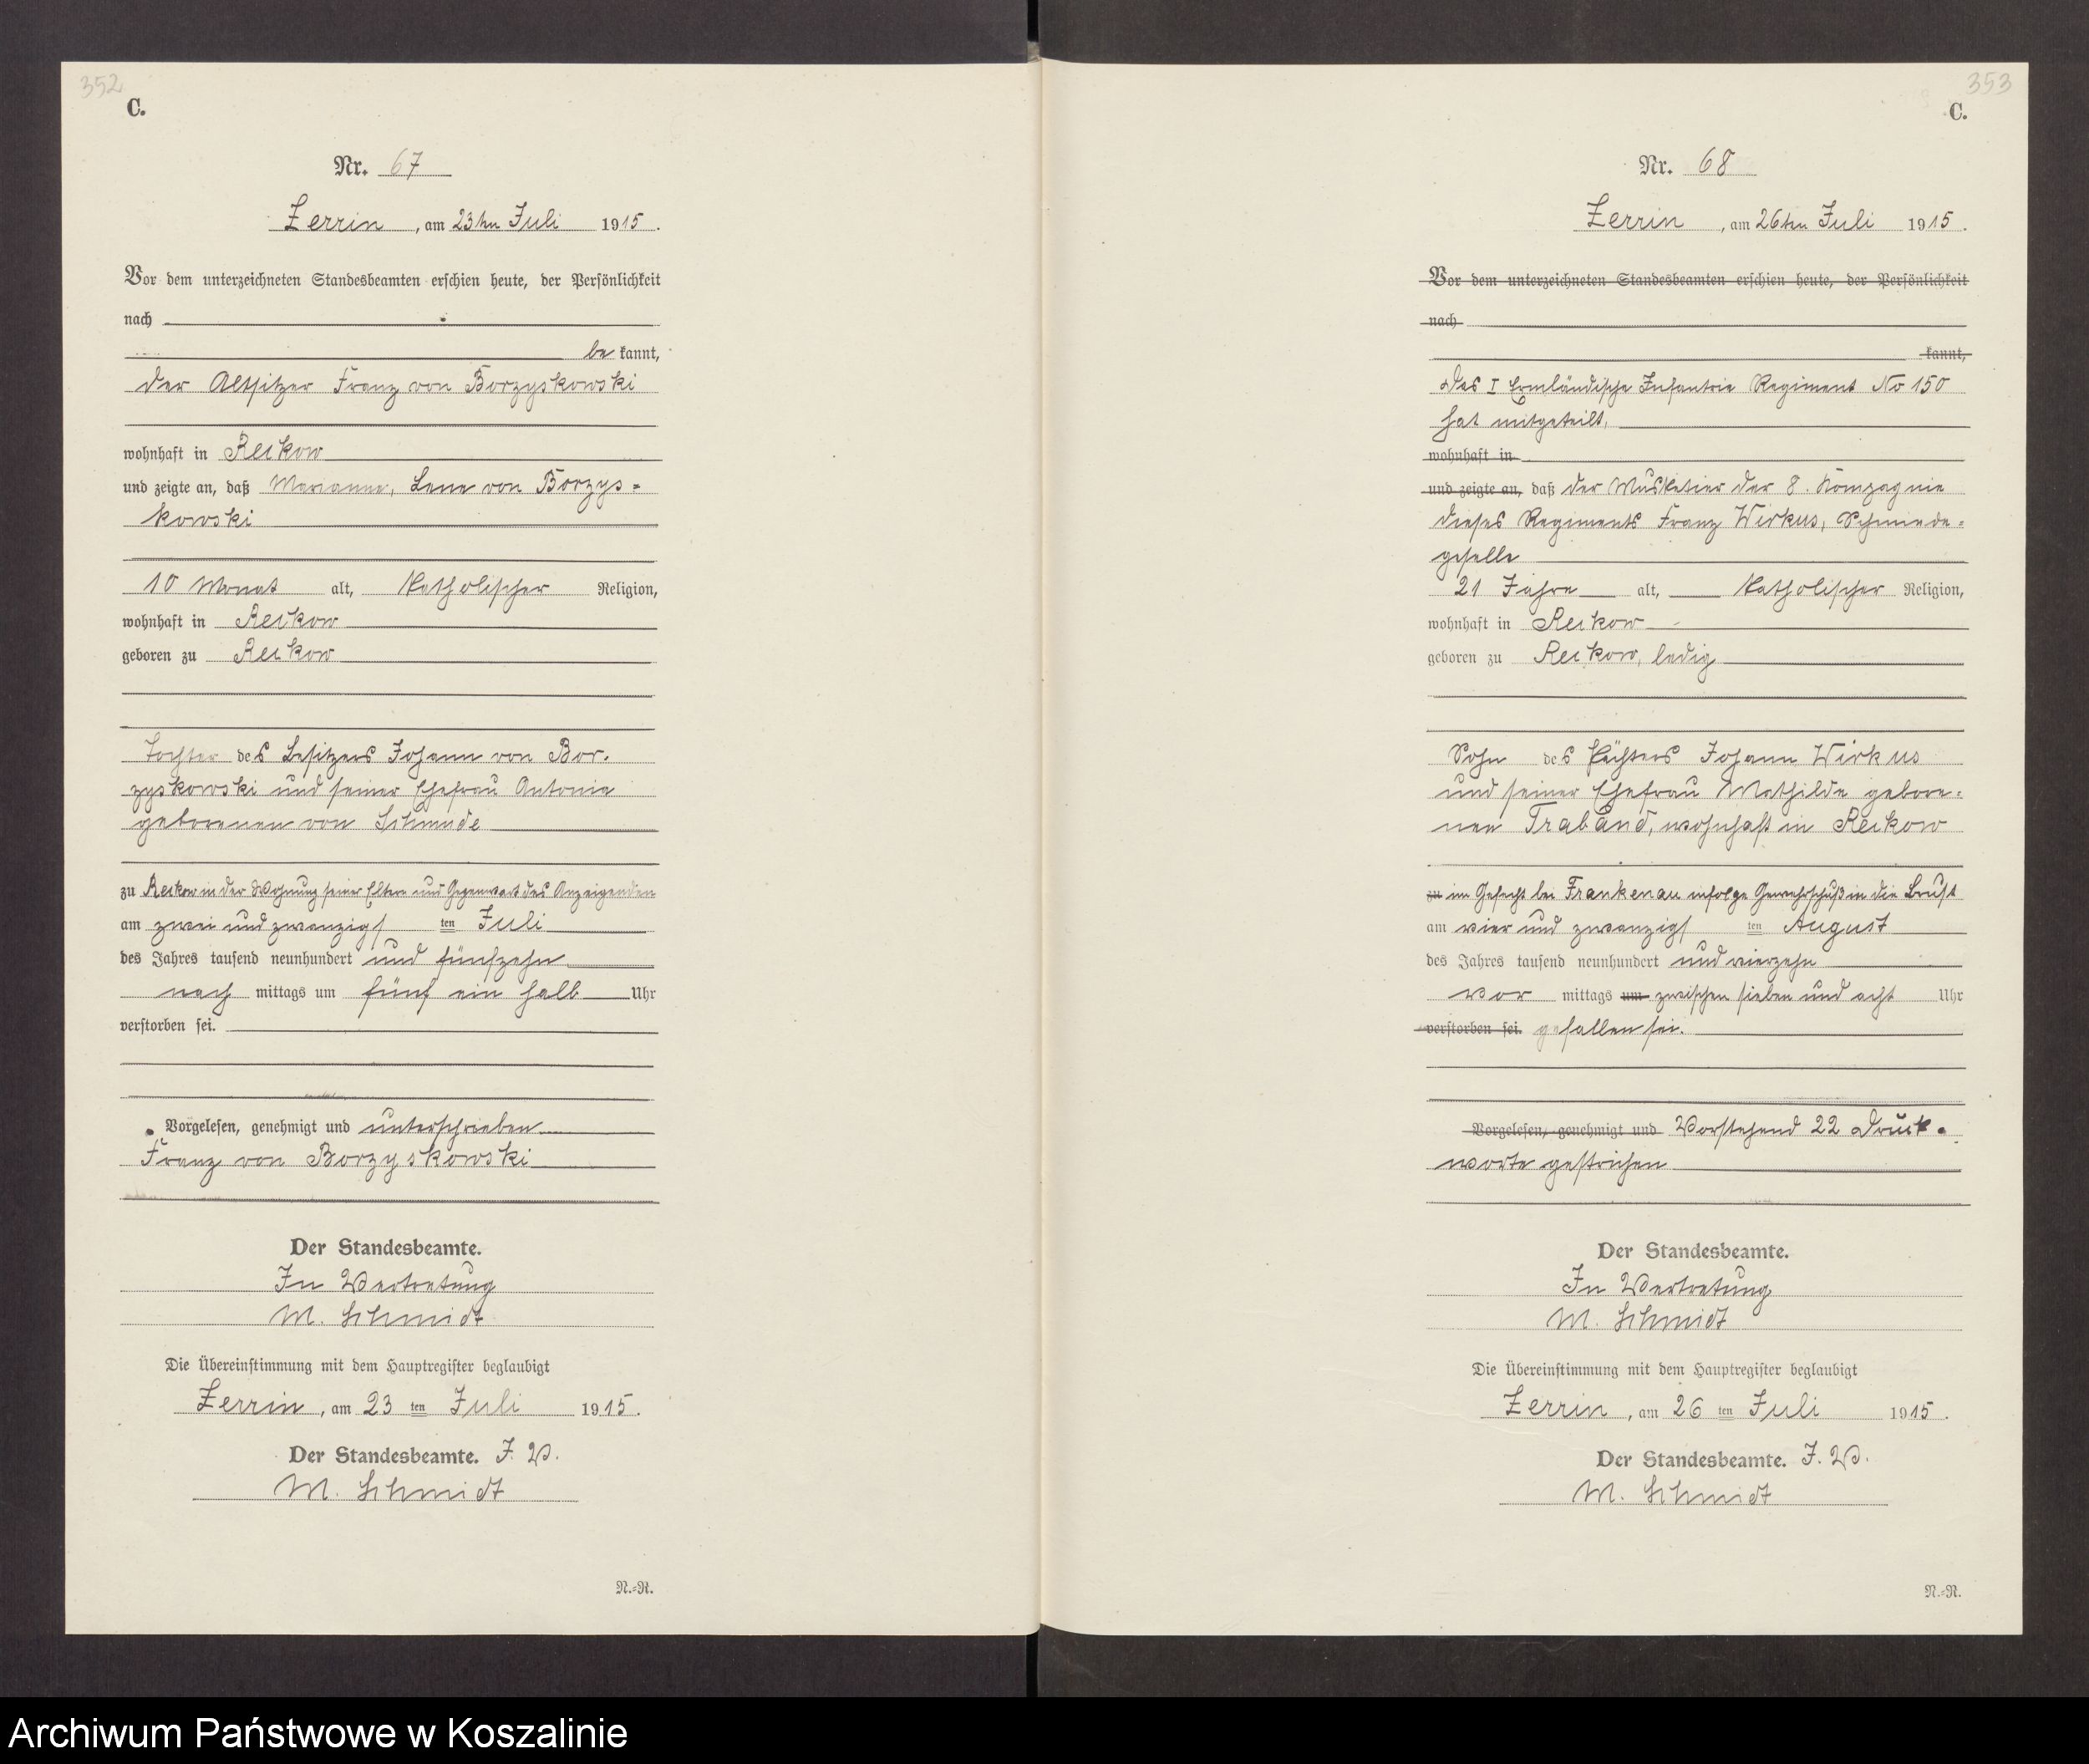 352
C.
Nr. 67
Zerrin, am 23ten Juli 1915.
Vor dem unterzeichneten Standesbeamten erschien heute, der Persönlichkeit
nach
be kannt,
der Altsitzer Franz von Borzyskowski
wohnhaft in Reckow
und zeigte an, daß Marianne, Lene von Borzys=
kowski
10 Monat alt, katholischer Religion,
wohnhaft in Reckow
geboren zu Reckow
Tochter des Besitzers Johann von Bor-
zyskowski und seiner Ehefrau Antonie
geborenen von Schmude
zu Reckow in der Wohnung seiner Eltern und Gegenwart des Anzeigenden
am zwei und zwanzigsten Juli
des Jahres tausend neunhundert und fünfzehn
nach mittags um fünf ein halb Uhr
verstorben sei.
Vorgelesen, genehmigt und unterschrieben
Franz von Borzyskowski
Der Standesbeamte.
In Vertretung
M. Schmidt
Die Übereinstimmung mit dem Hauptregister beglaubigt
Zerrin, am 23 ten Juli 1915.
Der Standesbeamte. J. V.
M. Schmidt
N.-R.
353
C.
Nr. 68
Zerrin, am 26ten Juli 1915.
Vor dem unterzeichneten Standesbeamten erschien heute, der Persönlichkeit
nach
kannt,
Das I Ermländische Infantrie Regiment No 150
hat mitgeteilt,
wohnhaft in
und zeigte an, daß der Musketier der 8. Kompagnie
dieses Regiments Franz Wirkus, Schmiede=
geselle
21 Jahre alt, katholischer Religion,
wohnhaft in Reckow
geboren zu Reckow, ledig
Sohn des Pächters Johann Wirkus
und seiner Ehefrau Mathilde gebore=
nen Traband, wohnhaft in Reckow
zu im Gefecht bei Frankenau infolge Gewehrschuß in die Brust
am vier und zwanzigsten August
des Jahres tausend neunhundert und vierzehn
vor mittags um zwischen sieben und acht Uhr
verstorben sei. gefallen sei.
Vorgelesen, genehmigt und Vorstehend 22 Druck=
worte gestrichen
Der Standesbeamte.
In Vertretung
M. Schmidt
Die Übereinstimmung mit dem Hauptregister beglaubigt
Zerrin, am 26 ten Juli 1915.
Der Standesbeamte. J. V.
M. Schmidt
N.-R.
Archiwum Państwowe w Koszalinie